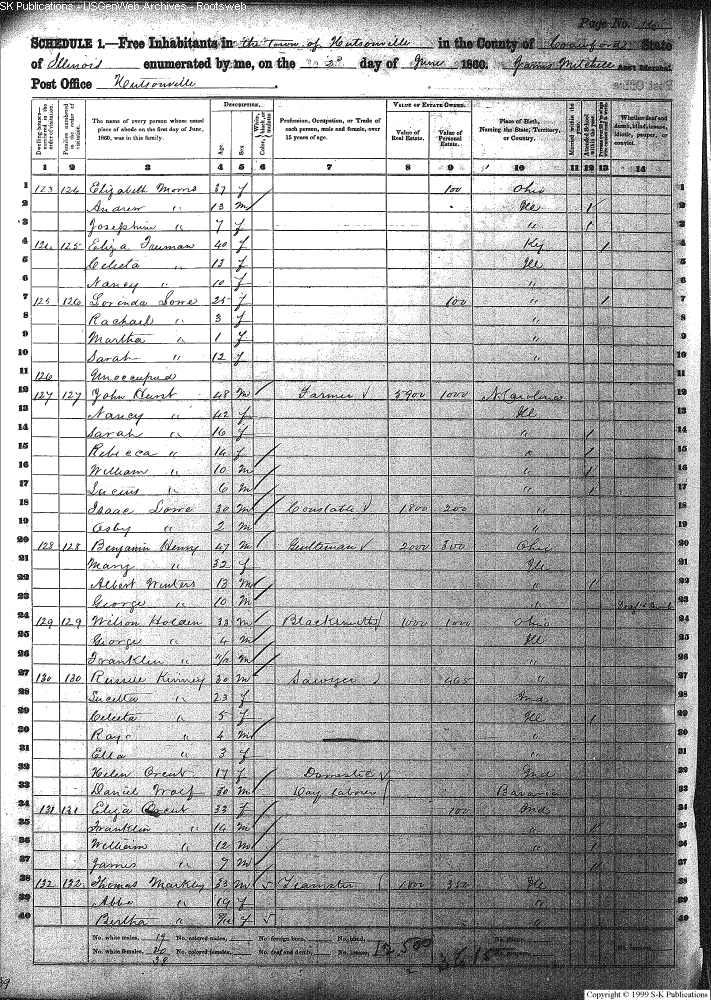 SK Publications - USGenWeb Archives - Rootsweb
Page No.
SCHEDULE 1.—Free Inhabitants in the Town of Hutsonville in the County of Crawford State
of Illinois enumerated by me, on the 2d day of June 1860. James Mitchell Ass't Marshal.
Post Office Hutsonville
DESCRIPTION. VALUE OF ESTATE OWNED.
Dwelling-houses—numbered in the order of visitation. Families numbered in the order of visitation. The name of every person whose usual place of abode on the first day of June, 1860, was in this family. Age Sex Color, White, black, or mulatto Profession, Occupation, or Trade of each person, male and female, over 15 years of age. Value of Real Estate. Value of Personal Estate. Place of Birth, Naming the State, Territory, or Country. Married within the year. Attended School within the year. Whether deaf and dumb, blind, insane, idiotic, pauper, or convict.
1 2 3 4 5 6 7 8 9 10 11 12 13 14
1 123 124 Elizabeth Morris 37 f 100 Ohio 1
2 Andrew " 13 m Ill 2
3 Josephine " 7 f " 3
4 124 125 Eliza Truman 40 f Ky 4
5 Celesta " 13 f Ill 5
6 Nancy " 10 f " 6
7 125 126 Lorinda Lowe 25 f 100 " 7
8 Rachael " 3 f " 8
9 Martha " 1 f " 9
10 Sarah " 12 f " 10
11 126 Unoccupied 11
12 127 127 John Hurst 48 m Farmer 5900 1000 N. Carolina
13 Nancy " 42 f Ill
14 Sarah " 16 f "
15 Rebecca " 14 f "
16 William " 10 m "
17 Lucius " 6 m "
18 Isaac Lowe 30 m Constable 1800 200 "
19 Osby " 2 m "
20 128 128 Benjamin Henry 47 m Gentleman 2000 300 Ohio
21 Mary " 32 f Ill
22 Albert Winters 13 m "
23 George " 10 m " Deaf & Dumb
24 129 129 Wilson Holden 33 m Blacksmith 1000 1000 Ohio
25 George " 4 m Ill
26 Franklin " m "
27 130 130 Russell Kinney 30 m Sawyer 465 "
28 Lucetta " 23 f Ind
29 Celesta " 5 f Ill
30 Ray " 4 m "
31 Ella " 3 f "
32 Helen Orcut 17 f Domestic Ind
33 Daniel Wolf 30 m Day laborer Bavaria
34 131 131 Eliza Orcut 33 f 100 Ind
35 Franklin " 14 m "
36 William " 12 m "
37 James " 9 m "
38 132 132 Thomas Markley 33 m Teamster 1800 350 Ill
39 Abbe " 19 f "
40 Bertha " f "
No. white males, 19 No. colored males, No. foreign born, No. blind,
No. white females, 20 No. colored females, No. deaf and dumb, No. insane, 12500 3615
39
Copyright © 1999 S-K Publications